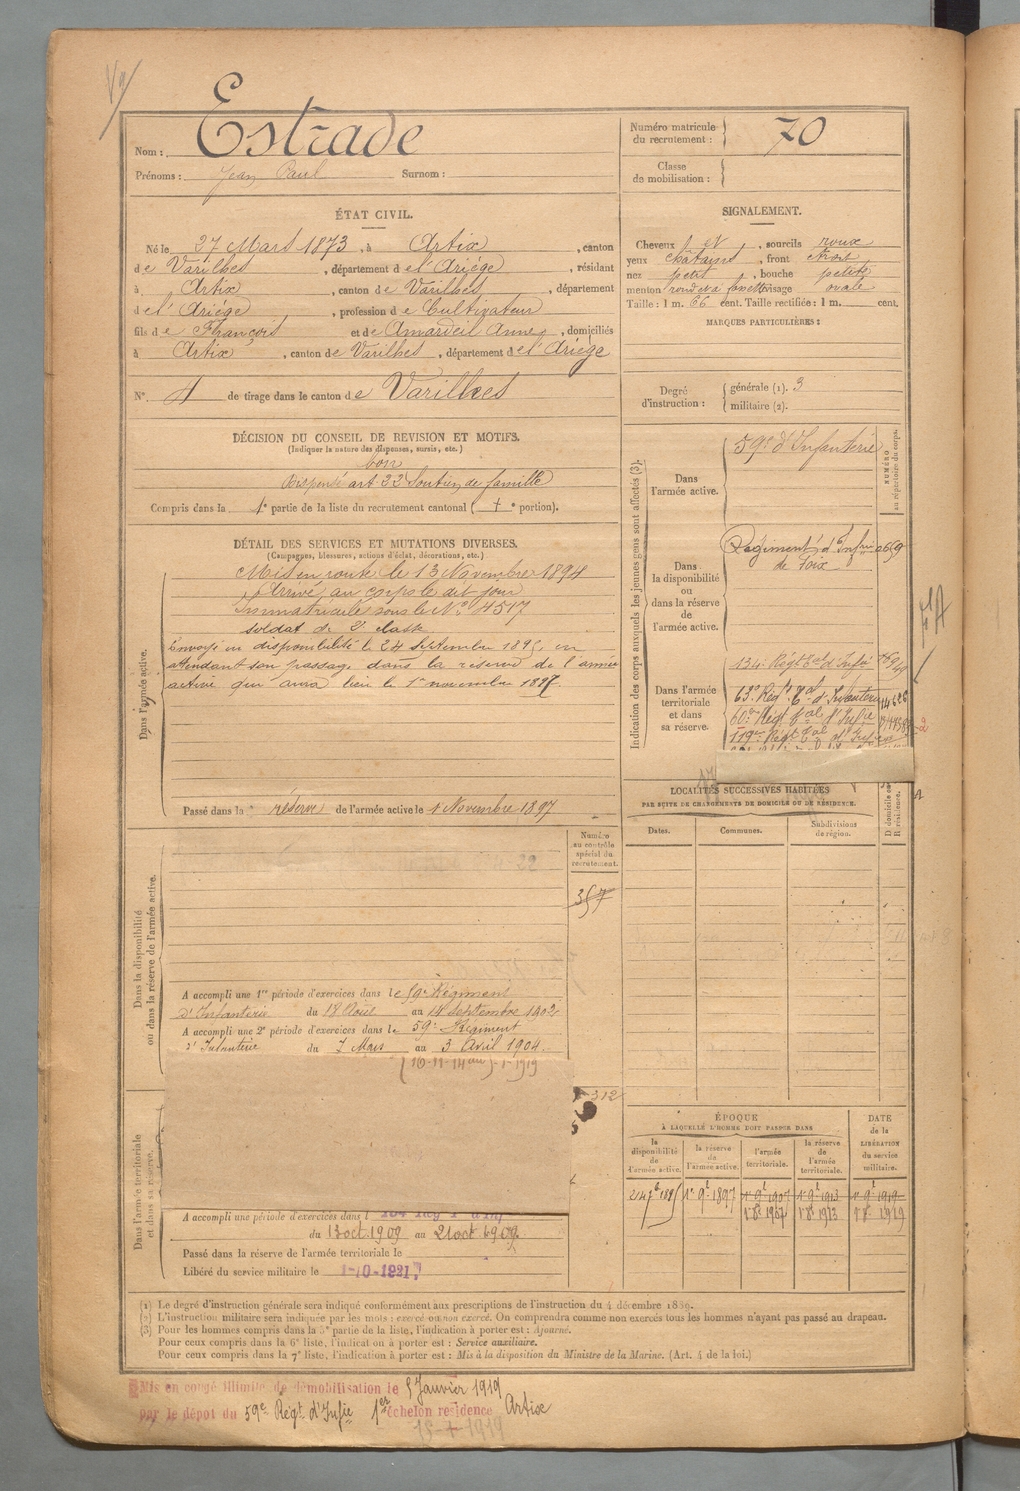 Estrade
Nom :
Prénoms : Jean Paul Surnom :
Numéro matricule du recrutement : 70
Classe de mobilisation :
ÉTAT CIVIL.
Né le 27 Mars 1873, à Artix, canton
de Varilhes, département de l'Ariège, résidant
à Artix, canton de Varilhes, département
de l'Ariège, profession de Cultivateur
fils de François et de Amardeil Anne, domiciliés
à Artix, canton de Varilhes, département de l'Ariège
N° 4 de tirage dans le canton de Varilhes
SIGNALEMENT.
Cheveux , sourcils roux
yeux châtains, front étroit
nez petit, bouche petite
menton rond à fossette visage ovale
Taille : 1 m. 66 cent. Taille rectifiée : 1 m. cent.
MARQUES PARTICULIÈRES :
Degré d'instruction :
générale (1). 3
militaire (2).
DÉCISION DU CONSEIL DE REVISION ET MOTIFS.
(Indiquer la nature des dispenses, sursis, etc.)
bon
Dispensé art. 22 Soutien de famille
Compris dans la 1e partie de la liste du recrutement cantonal ( e portion).
DÉTAIL DES SERVICES ET MUTATIONS DIVERSES.
(Campagnes, blessures, actions d'éclat, décorations, etc.)
Dans l'armée active.
Mis en route le 13 Novembre 1894
Arrivé au corps le dit jour
Immatriculé sous le N° 4517
soldat de 2e classe
Envoyé en disponibilité le 24 septembre 1895, en
attendant son passage dans la réserve de l'armée
active qui aura lieu le 1er novembre 1897.
Passé dans la réserve de l'armée active le 1 Novembre 1897
Indication des corps auxquels les jeunes gens sont affectés (3).
NUMÉRO au répertoire du corps.
Dans l'armée active.
59e d'Infanterie
Dans la disponibilité ou dans la réserve de l'armée active.
Régiment d'Infie
de Foix
Dans l'armée territoriale et dans sa réserve.
134e Régt Eal d'Infie
63e Régt Eal d'Infanterie
60e Régt Eal d'Infie
119e Régt Eal d'Infie
LOCALITÉS SUCCESSIVES HABITÉES
PAR SUITE DE CHANGEMENTS DE DOMICILE OU DE RÉSIDENCE.
Dates. Communes. Subdivisions de région. D domicile ou R résidence.
Numéro au contrôle spécial du recrutement.
357
Dans la disponibilité ou dans la réserve de l'armée active.
A accompli une 1re période d'exercices dans le 59e Régiment
d'Infanterie du 18 Août au 14 septembre 1902
A accompli une 2e période d'exercices dans le 59e Régiment
d'Infanterie du 7 Mars au 3 Avril 1904.
Dans l'armée territoriale et dans sa réserve.
A accompli une période d'exercices dans l
du 13 oct. 1909 au 21 oct 1909.
Passé dans la réserve de l'armée territoriale le
Libéré du service militaire le 1-10-1921
ÉPOQUE
À LAQUELLE L'HOMME DOIT PASSER DANS
la disponibilité de l'armée active. la réserve de l'armée active. l'armée territoriale. la réserve de l'armée territoriale.
DATE de la LIBÉRATION du service militaire.
24 7e 1895 1er 9e 1897 1er 9e 1907 1er 9e 1913 1er 9e 1919
1er 8e 1907 1er 8e 1913 1er 8e 1919
(1) Le degré d'instruction générale sera indiqué conformément aux prescriptions de l'instruction du 4 décembre 1889.
(2) L'instruction militaire sera indiquée par les mots : exercé ou non exercé. On comprendra comme non exercés tous les hommes n'ayant pas passé au drapeau.
(3) Pour les hommes compris dans la 5e partie de la liste, l'indication à porter est : Ajourné.
Pour ceux compris dans la 6e liste, l'indication à porter est : Service auxiliaire.
Pour ceux compris dans la 7e liste, l'indication à porter est : Mis à la disposition du Ministre de la Marine. (Art. 4 de la loi.)
Mis en congé illimité de démobilisation le 5 Janvier 1919
par le dépôt du 59e Régt d'Infie 1er échelon residence Artix